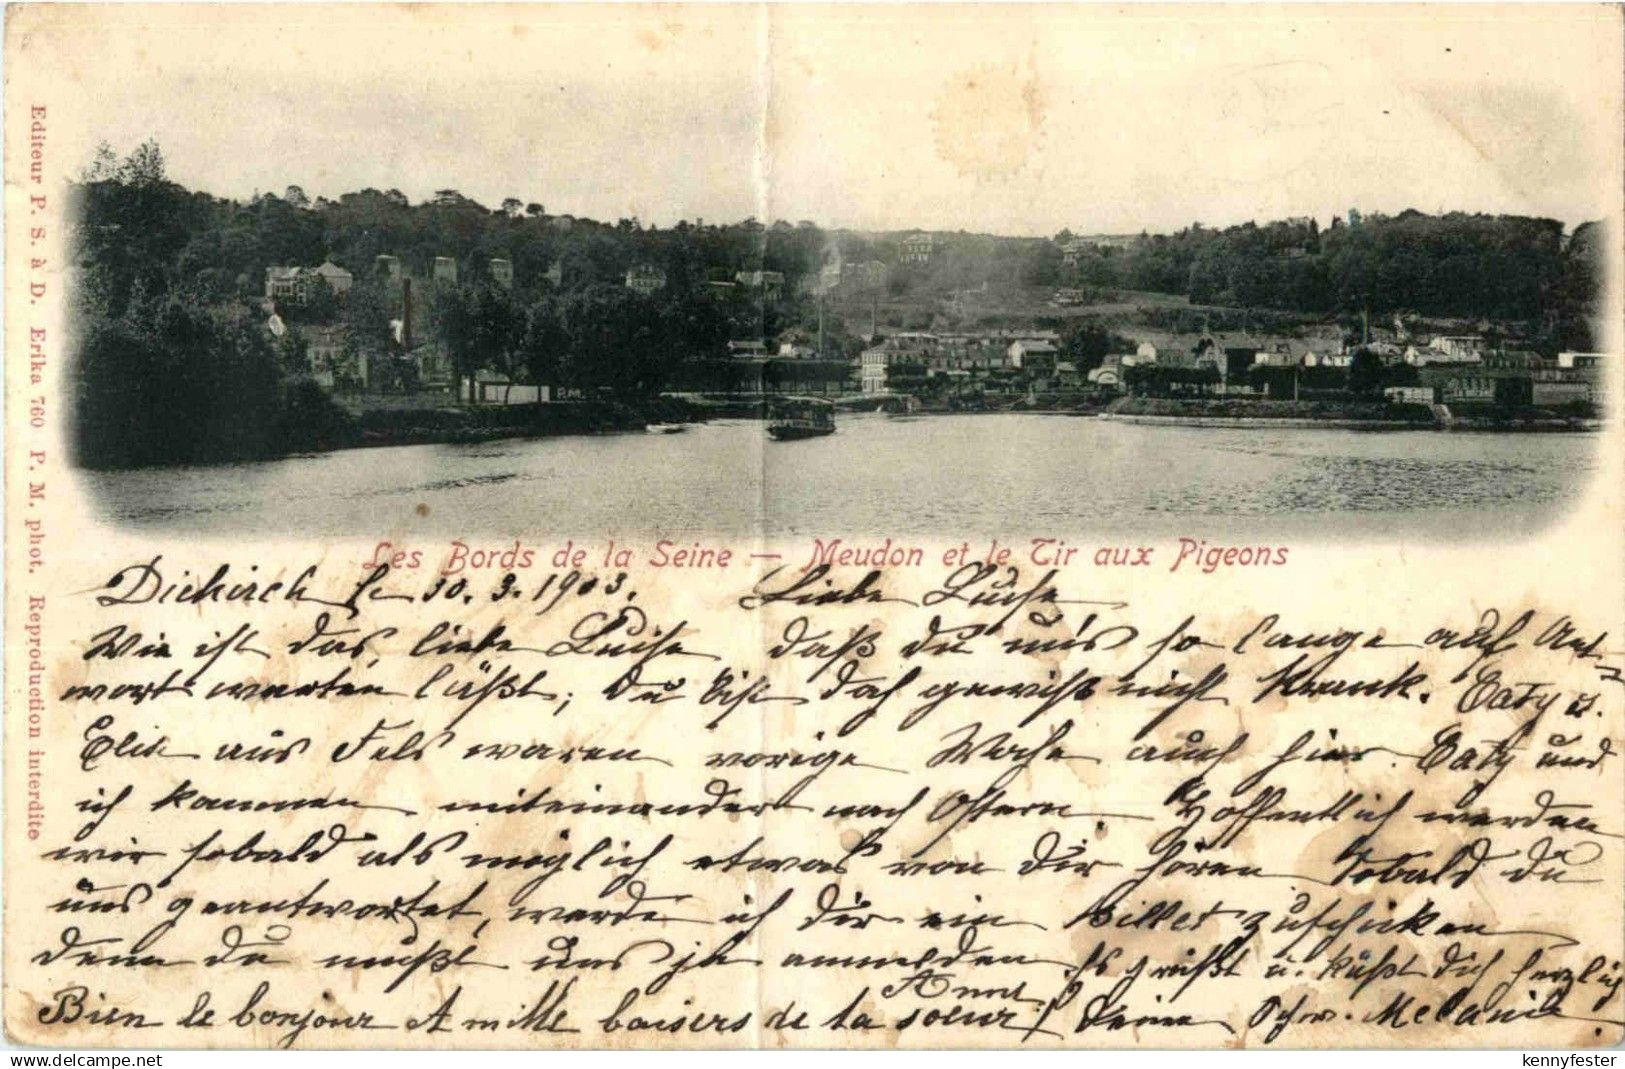 Editeur P. S. à D. Erika 760 P. M. phot. Reproduction interdite
P.M.
Les Bords de la Seine — Meudon et le Tir aux Pigeons
Diekirch le 30. 3. 1903. Liebe Luise
Wie ist das, liebe Luise daß du uns so lange auf Ant-
wort warten läßt; du bist doch gewiß nicht krank. Caty u.
Elise aus Fels waren vorige Woche auch hier. Caty und
ich kommen miteinander nach Ostern. Hoffentlich werden
wir sobald als möglich etwas von dir hören Sobald du
uns geantwortet, werde ich dir ein Billet zuschicken
denn du mußt uns ja anmelden Es grüßt u. küßt dich herzlich
Bien le bonjour et mille baisers de ta soeur Anna
Deine Schw. Melanie.
kennyfester